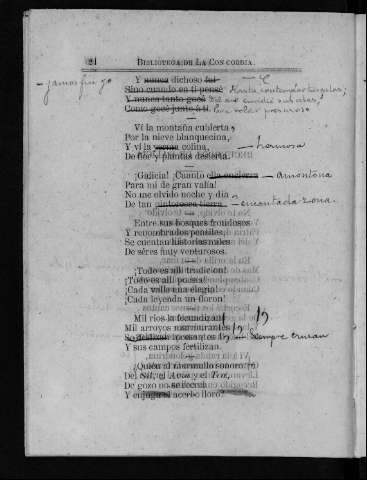 24 BIBLIOTECA DE LA CONCORDIA.
Y nunca dichoso fuí
– jamos fui yo
Sino cuando en ti pensé
Hasta contemplar tus galas;
Y nunca tanto gocé
Como gocé junto á ti.
Ví la montaña cubierta
Por la nieve blanquecina,
Y ví la yerma colina, – hermosa
De flor y plantas desierta.
¡Galicia! ¡Cuanto ella encierra – amontona
Para mi de gran valía!
No me olvido noche y día
De tan pintoresca tierra. – encantada zona.
Entre sus bosques frondosos
Y renombrados pensiles,
Se cuentan historias miles
De séres muy venturosos.
¡Todo es allí tradicion!
¡Todo es allí poesía!
¡Cada valle una elegía!
¡Cada leyenda un floron!
Mil rios la fecundizan
Mil arroyos murmurantes
Se deslizan incesantes siempre cruzan
Y sus campos fertilizan.
¿Quién al murmullo sonoro
Del Sil, el Avia y el Tea,
De gozo no se recrea
Y enjuga el acerbo lloro?